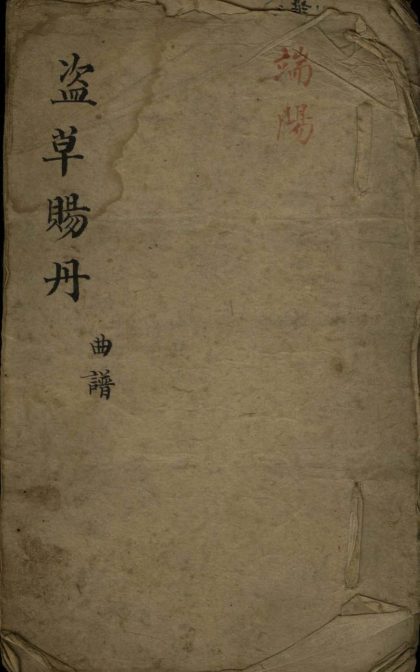 端陽
盗草賜丹
曲譜